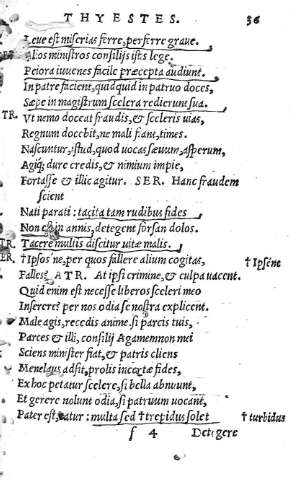 THYESTES. 36
Leue est miserias ferre, perferre graue.
Alios ministros consilijs istis lege.
Peiora iuuenes facile præcepta audiunt.
In patre facient, quidquid in patruo doces,
Sæpe in magistrum scelera redierunt sua.
TR. Vt nemo doceat fraudis, & sceleris uias,
Regnum docebit, ne mali fiant, times.
Nascuntur, istud, quod uocas sæuum, asperum,
Agiq; dure credis, & nimium impie,
Fortasse & illic agitur. SER. Hanc fraudem
scient
Nati parati: tacita tam rudibus fides
Non est in annis, detegent forsan dolos.
TR. Tacere multis discitur uitæ malis.
ER. †Ipsos ne, per quos fallere alium cogitas, †Ipsosne
Falles? ATR. At ipsi crimine, & culpa uacent.
Quid enim est necesse liberos sceleri meo
Inserere? per nos odia se nostra explicent.
Male agis, recedis anime. si parcis tuis,
Parces & illi, consilij Agamemnon mei
Sciens minister fiat, & patris cliens
Menelaus adsit, prolis incertæ fides,
Ex hoc petatur scelere, si bella abnuunt,
Et gerere nolunt odia, si patruum uocant,
Pater est, eatur: multa sed †trepidus solet †turbidus
f 4 Detegere